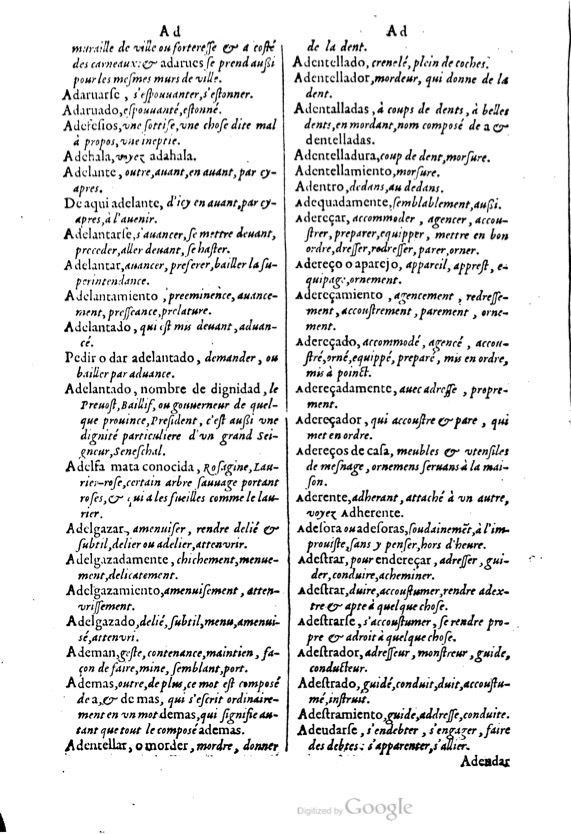 Ad
muraille de ville ou forteresse & a costé
des carneaux: & adarues se prend aussi
pour les mesmes murs de ville.
Adaruarse, s'espouuanter, s'estonner.
Adaruado, espouuanté, estonné.
Adefesios, vne sottise, vne chose dite mal
à propos, vne ineptie.
Adehala, voyez adahala.
Adelante, outre, auant, en auant, par cy-
apres.
De aqui adelante, d'icy en auant, par cy-
apres, à l'auenir.
Adelantarse, s'auancer, se mettre deuant,
preceder, aller deuant, se haster.
Adelantar, auancer, preferer, bailler la su-
perintendance.
Adelantamiento, preeminence, auance-
ment, presseance, prelature.
Adelantado, qui est mis deuant, aduan-
cé.
Pedir o dar adelantado, demander, ou
bailler par aduance.
Adelantado, nombre de dignidad, le
Preuost, Baillif, ou gouuerneur de quel-
que prouince, President, c'est aussi vne
dignité particuliere d'vn grand Sei-
gneur, Seneschal.
Adelfa mata conocida, Rosagine, Lau-
rier-rose, certain arbre sauuage portant
roses, & qui a les fueilles comme le lau-
rier.
Adelgazar, amenuiser, rendre delié &
subtil, delier ou adelier, attenvrir.
Adelgazadamente, chichement, menue-
ment, delicatement.
Adelgazamiento, amenuisement, atten-
vrissement.
Adelgazado, delié, subtil, menu, amenui-
sé, attenvri.
Ademan, geste, contenance, maintien, fa-
çon de faire, mine, semblant, port.
Ademas, outre, de plus, ce mot est composé
de a, & de mas, qui s'escrit ordinaire-
ment en vn mot demas, qui signifie au-
tant que tout le composé ademas.
Adentellar, o morder, mordre, donner
Ad
de la dent.
Adentellado, crenelé, plein de coches.
Adentellador, mordeur, qui donne de la
dent.
Adentalladas, à coups de dents, à belles
dents, en mordant, nom composé de a &
dentelladas.
Adentelladura, coup de dent, morsure.
Adentellamiento, morsure.
Adentro, dedans, au dedans.
Adequadamente, semblablement, aussi.
Adereçar, accommoder, agencer, accou-
strer, preparer, equipper, mettre en bon
ordre, dresser, redresser, parer, orner.
Adereço o aparejo, appareil, apprest, e-
quipage, ornement.
Adereçamiento, agencement, redresse-
ment, accoustrement, parement, orne-
ment.
Adereçado, accommodé, agencé, accou-
stré, orné, equippé, preparé, mis en ordre,
mis à poinct.
Adereçadamente, auec adresse, propre-
ment.
Adereçador, qui accoustre & pare, qui
met en ordre.
Adereços de casa, meubles & vtensiles
de mesnage, ornemens seruans à la mai-
son.
Aderente, adherant, attaché à vn autre,
voyez Adherente.
Adesora ou adesoras, soudainemēt, à l'im-
prouiste, sans y penser, hors d'heure.
Adestrar, pour endereçar, adresser, gui-
der, conduire, acheminer.
Adestrar, duire, accoustumer, rendre adex-
tre & apte à quelque chose.
Adestrarse, s'accoustumer, se rendre pro-
pre & adroit à quelque chose.
Adestrador, adresseur, monstreur, guide,
conducteur.
Adestrado, guidé, conduit, duit, accoustu-
mé, instruit.
Adestramiento, guide, addresse, conduite.
Adeudarse, s'endebter, s'engager, faire
des debtes: s'apparenter, s'allier.
Adeudar
Digitized by Google